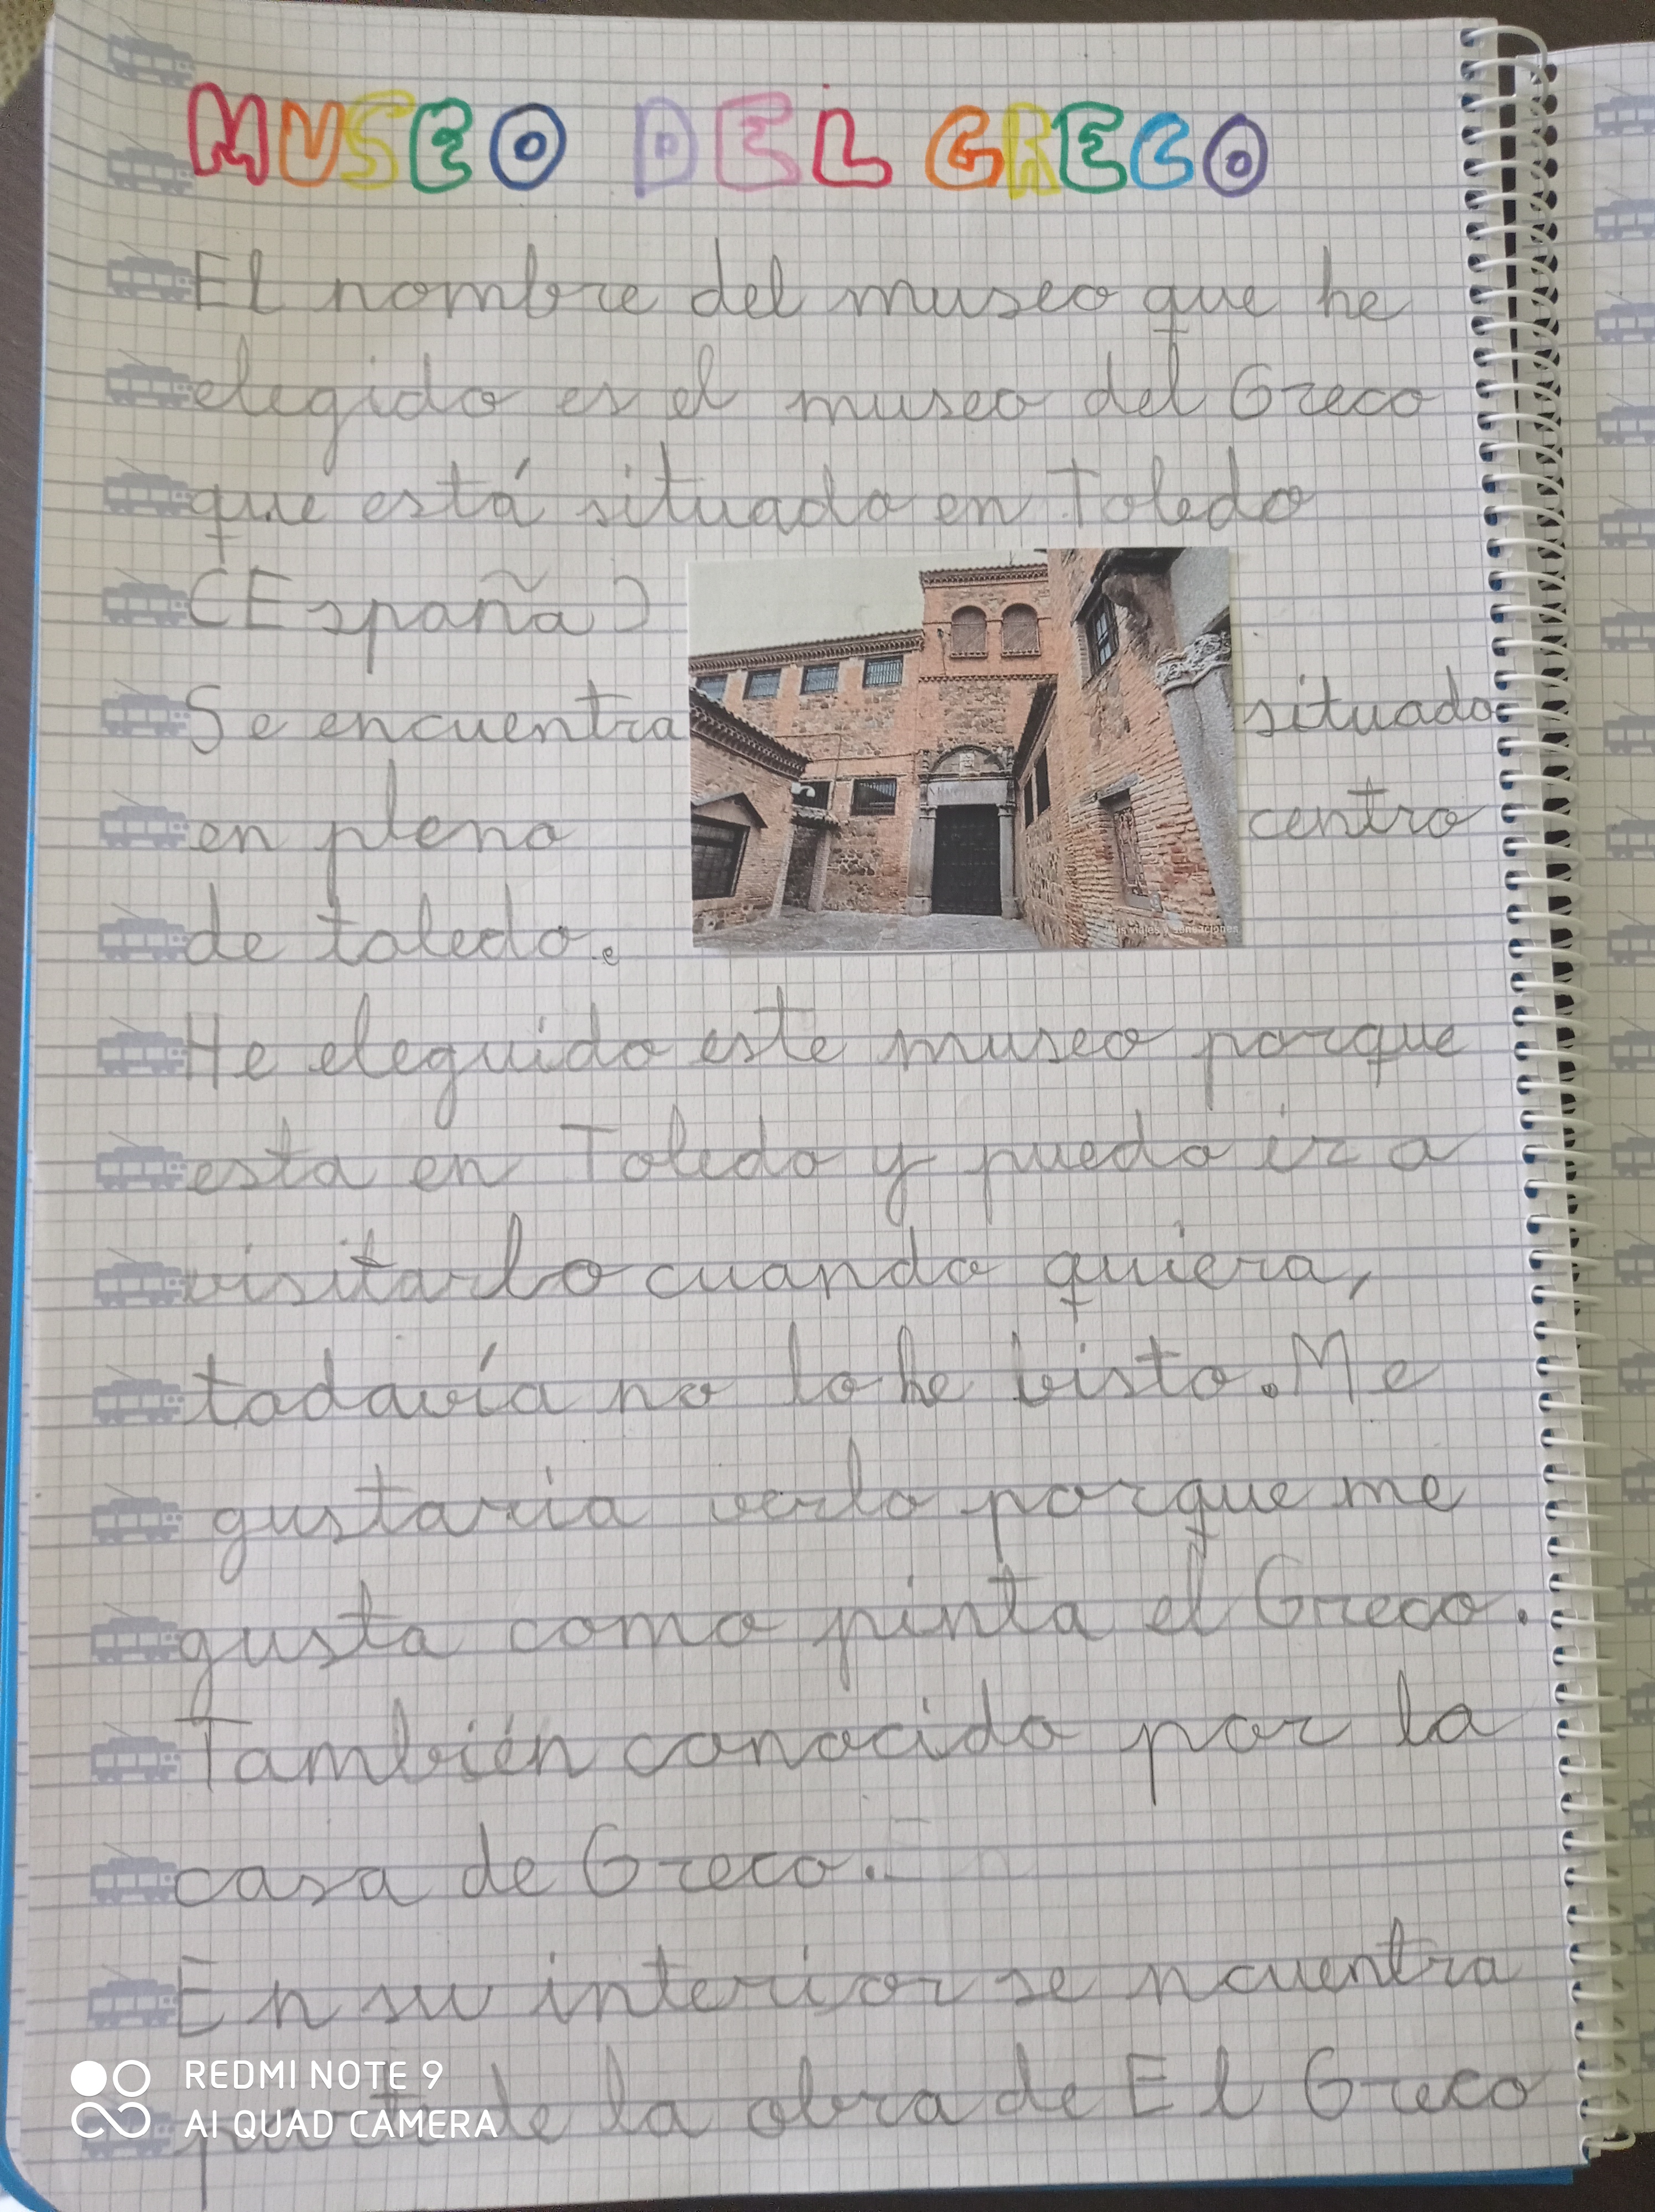 MUSEO DEL GRECO
El nombre del museo que he
elegido es el museo del Greco
que está situado en Toledo
(España)
Se encuentra situado
en pleno centro
de toledo.
He eleguido este museo porque
esta en Toledo y puedo ir a
visitarlo cuando quiera,
todavía no lo he visto. Me
gustaria verlo porque me
gusta como pinta el Greco.
También conocido por la
casa de Greco.
En su interior se ncuentra
parte de la obra de El Greco
Mis viajes y sensaciones
REDMI NOTE 9
AI QUAD CAMERA